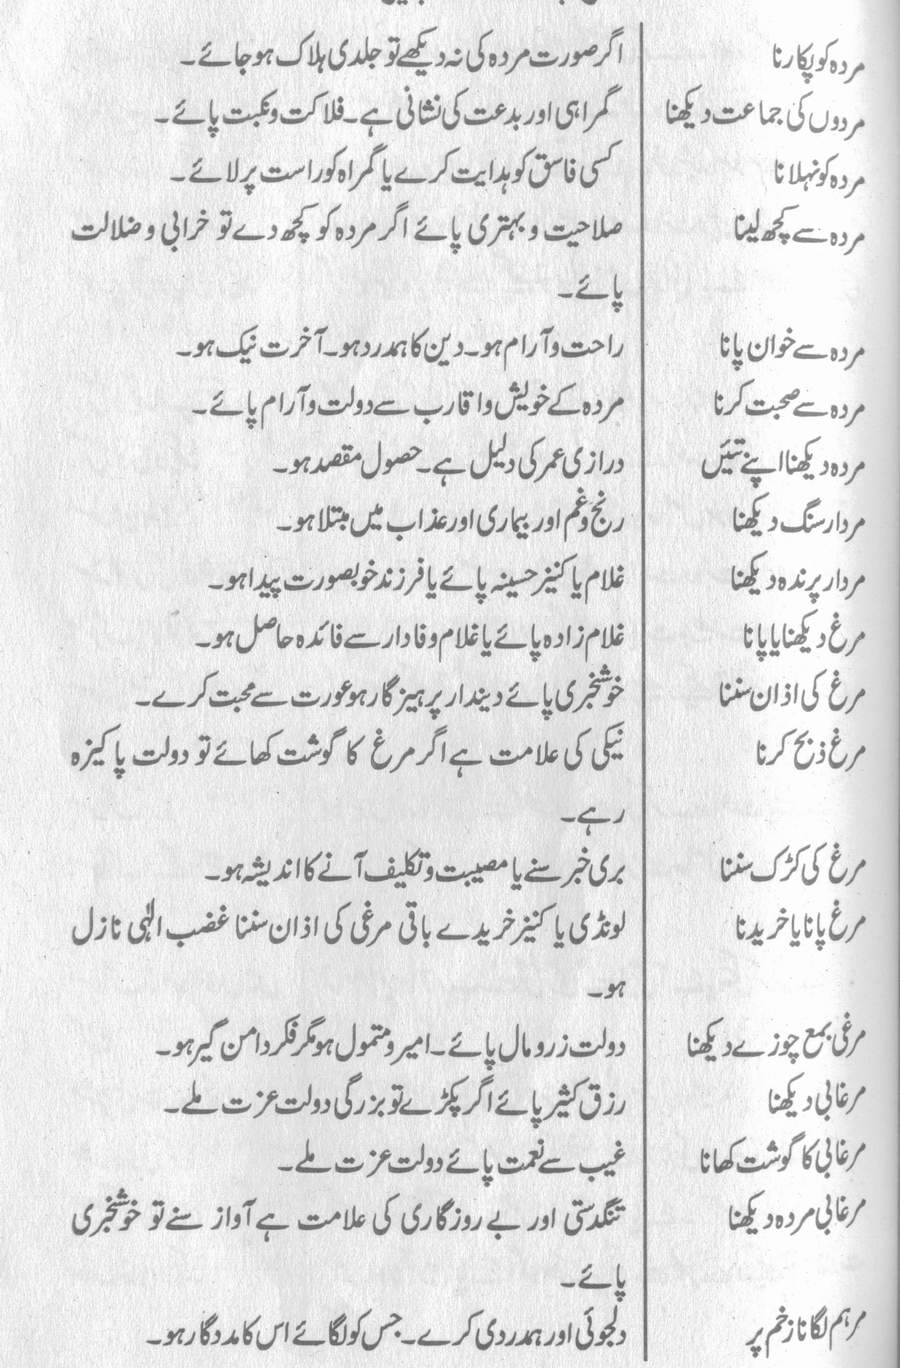 مردہ کو پکارنا اگر صورت مردہ کی نہ دیکھے تو جلدی ہلاک ہو جائے۔
مردوں کی جماعت دیکھنا گمراہی اور بدعت کی نشانی ہے۔ فلاکت و نکبت پائے۔
مردہ کو نہلانا کسی فاسق کو ہدایت کرے یا گمراہ کو راست پر لائے۔
مردہ سے کچھ لینا صلاحیت و بہتری پائے اگر مردہ کو کچھ دے تو خرابی و ضلالت
پائے۔
مردہ سے خوان پانا راحت و آرام ہو۔ دین کا ہمدرد ہو۔ آخرت نیک ہو۔
مردہ سے صحبت کرنا مردہ کے خویش و اقارب سے دولت و آرام پائے۔
مردہ دیکھنا اپنے تئیں درازی عمر کی دلیل ہے۔ حصول مقصد ہو۔
مردار سنگ دیکھنا رنج و غم اور بیماری اور عذاب میں مبتلا ہو۔
مردار پرندہ دیکھنا غلام یا کنیز حسینہ پائے یا فرزند خوبصورت پیدا ہو۔
مرغ دیکھنا یا پانا غلام زادہ پائے یا غلام وفادار سے فائدہ حاصل ہو۔
مرغ کی اذان سننا خوشخبری پائے دیندار پرہیز گار ہو عورت سے محبت کرے۔
مرغ ذبح کرنا نیکی کی علامت ہے اگر مرغ کا گوشت کھائے تو دولت پاکیزہ
رہے۔
مرغ کی کڑک سننا بری خبر سنے یا مصیبت و تکلیف آنے کا اندیشہ ہو۔
مرغ پانا یا خریدنا لونڈی یا کنیز خریدے باقی مرغی کی اذان سننا غضب الٰہی نازل
ہو۔
مرغی بمع چوزے دیکھنا دولت زر و مال پائے۔ امیر و متمول ہو مگر فکر دامن گیر ہو۔
مرغابی دیکھنا رزق کثیر پائے اگر پکڑے تو بزرگی دولت عزت ملے۔
مرغابی کا گوشت کھانا غیب سے نعمت پائے دولت عزت ملے۔
مرغابی مردہ دیکھنا تنگدستی اور بے روزگاری کی علامت ہے آواز سنے تو خوشخبری
پائے۔
مرہم لگانا زخم پر دلجوئی اور ہمدردی کرے۔ جس کو لگائے اس کا مددگار ہو۔